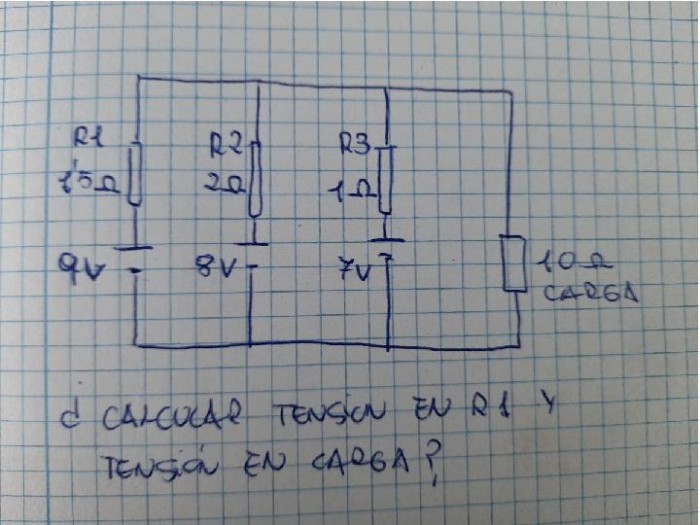 R1
1'5Ω
9V
R2
2Ω
8V
R3
1Ω
7V
10Ω
CARGA
¿ CALCULAR TENSIÓN EN R1 Y
TENSIÓN EN CARGA?